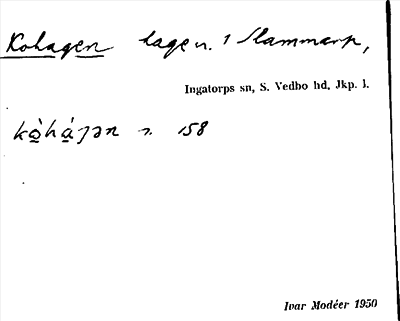 Kohagen hage n. 1 Slammarp,
Ingatorps sn, S. Vedbo hd, Jkp. l.
158
Ivar Modéer 1950